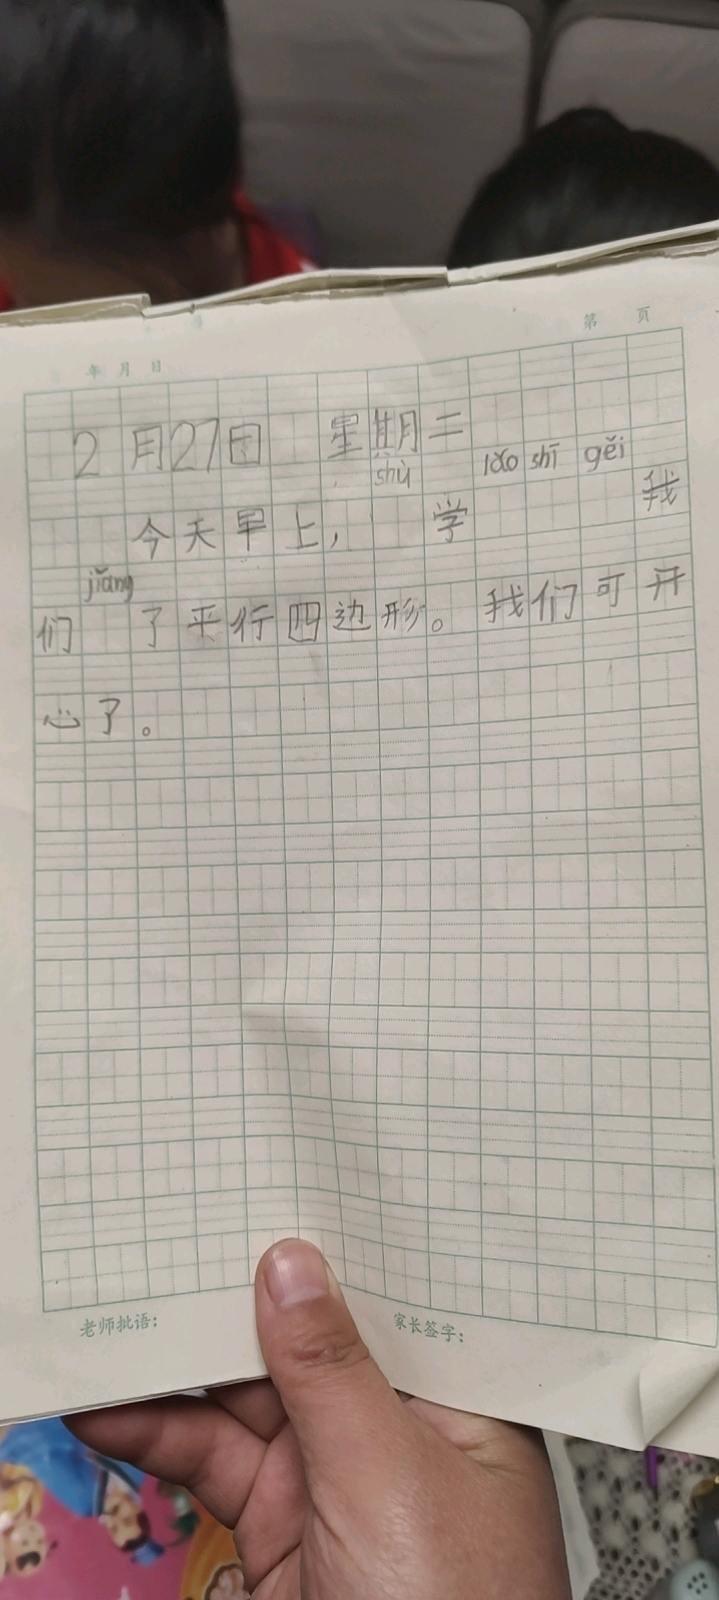 第 页
年 月 日
2月27日 星期二
今天早上，shù学lǎo shī gěi我
们jiǎng了平行四边形。我们可开
心了。
老师批语： 家长签字：